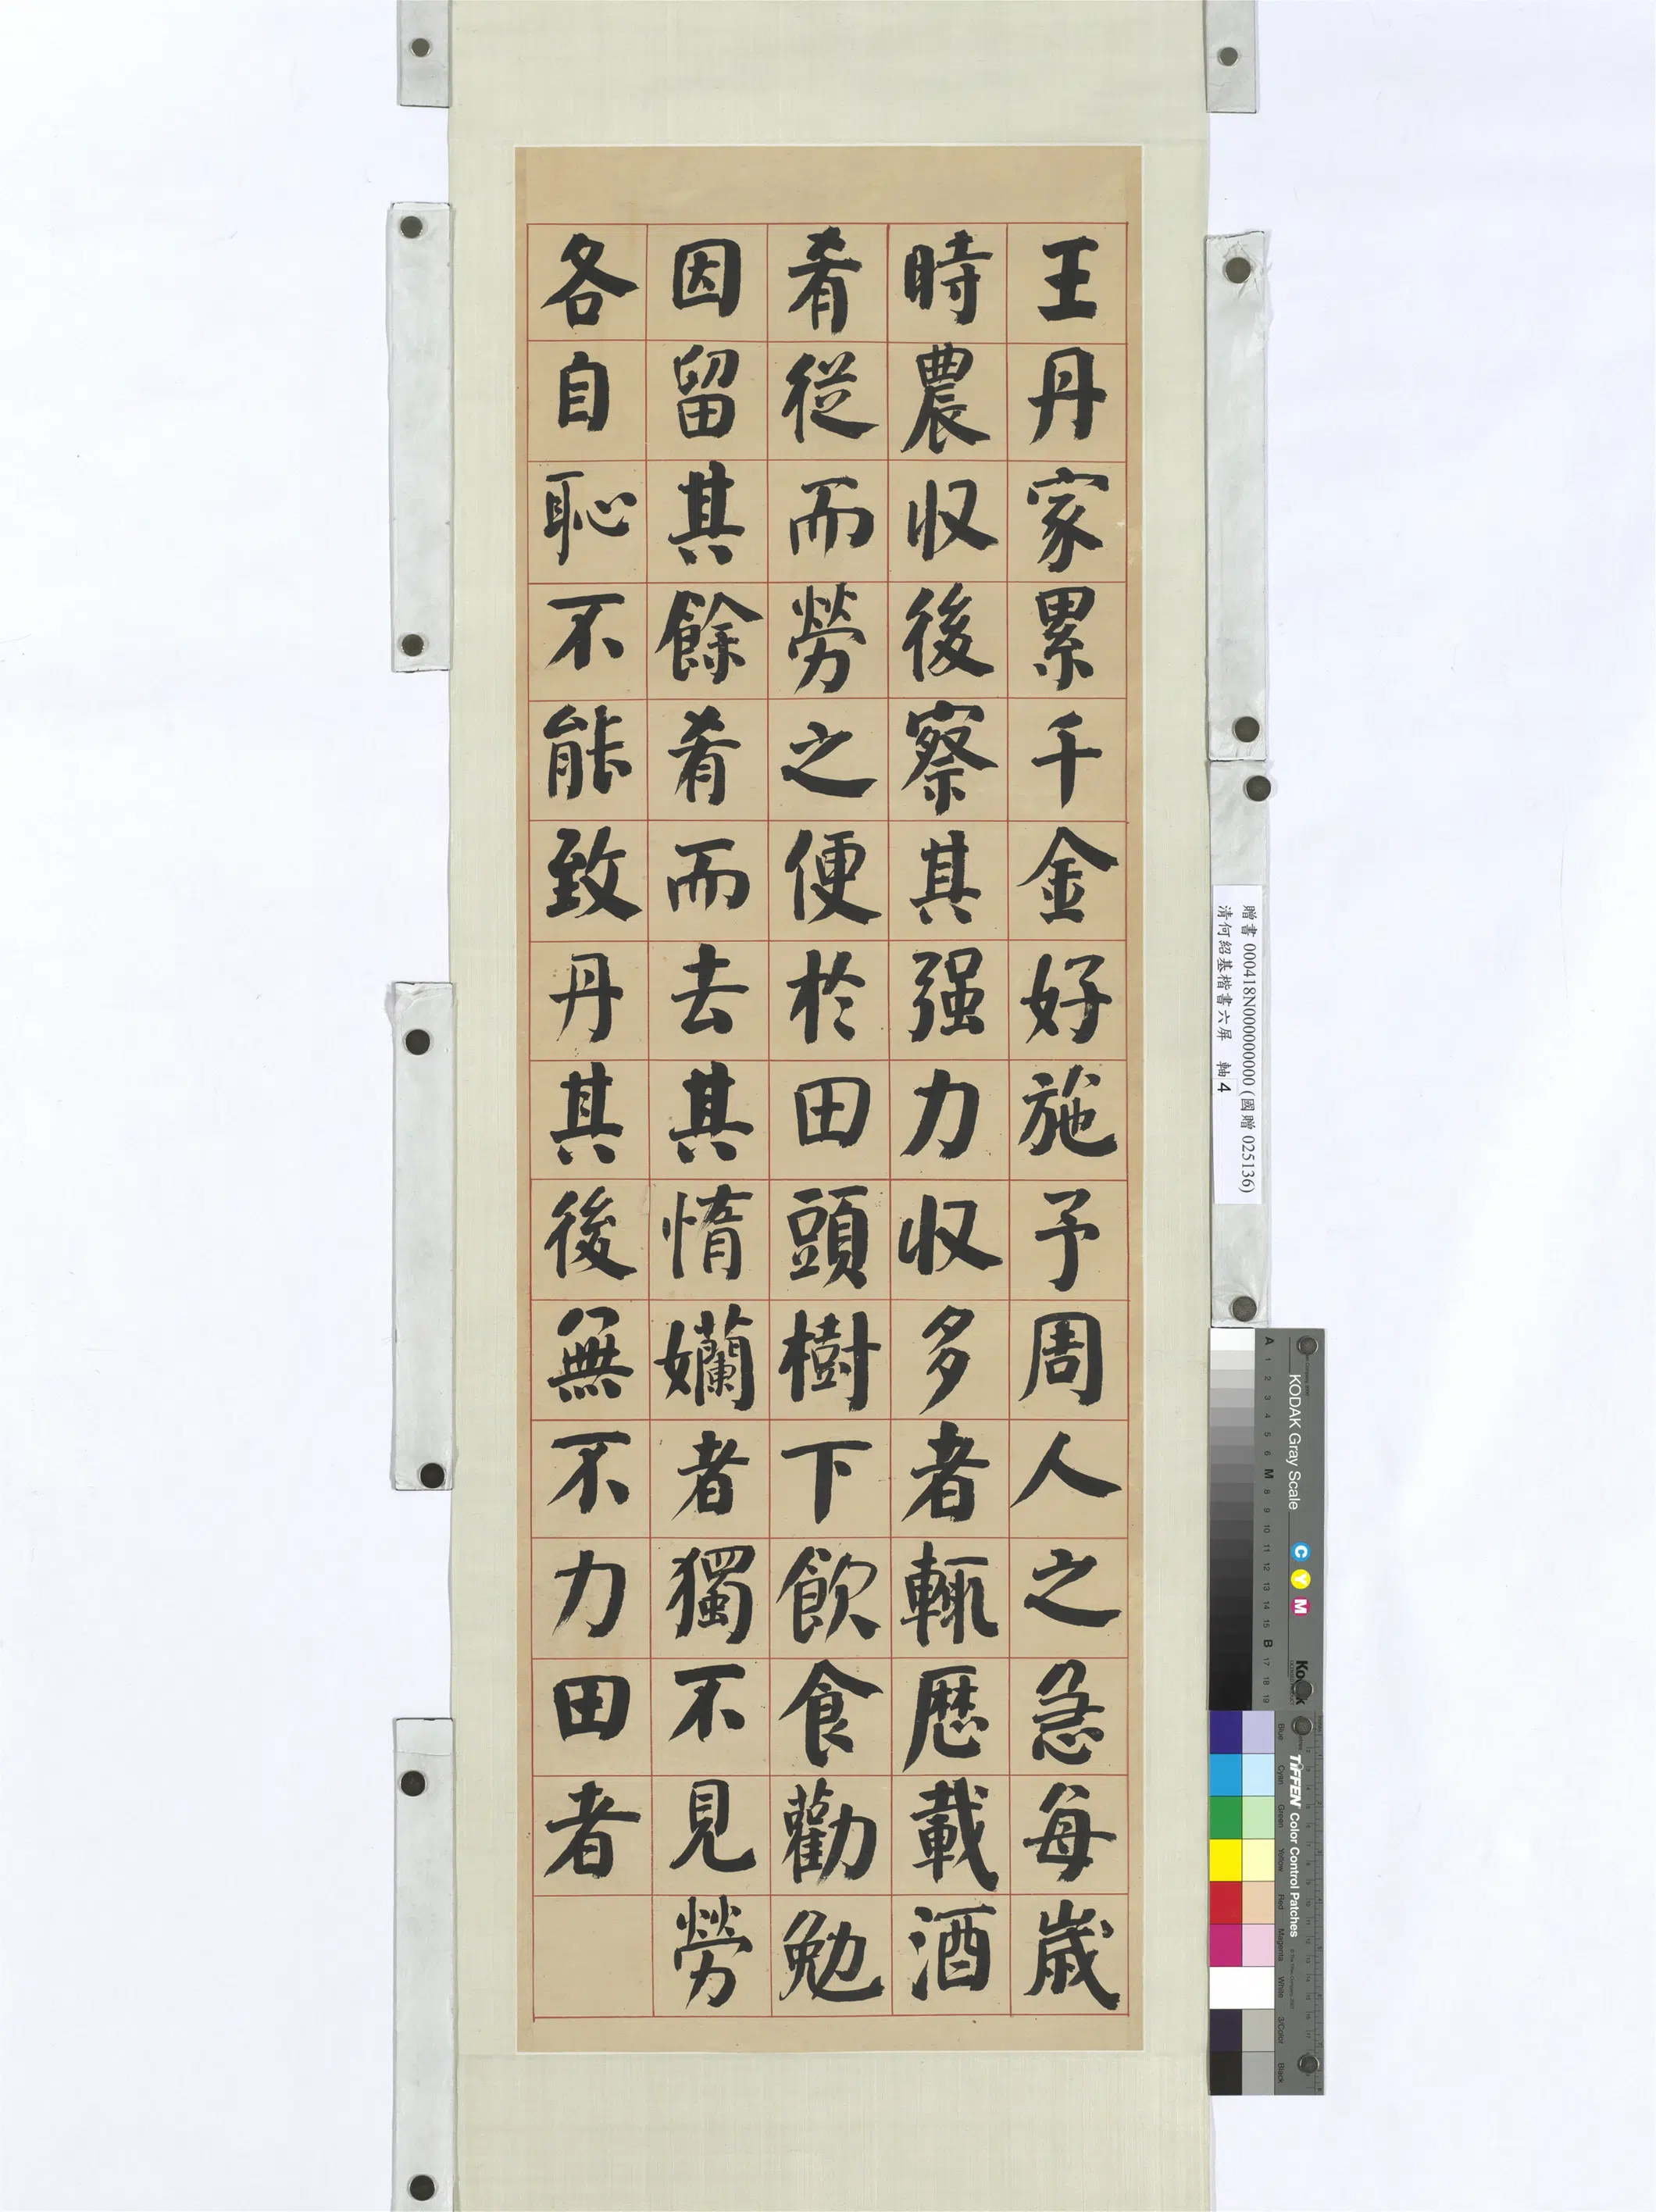 王丹家累千金好施予周人之急每歳
時農収後察其强力収多者輙歴載酒
肴從而勞之便於田頭樹下飲食勸勉
因留其餘肴而去其惰孏者獨不見勞
各自恥不能致丹其後無不力田者
贈書 000418N000000000 (國贈 025136)
清何紹基楷書六屏 軸4
KODAK Gray Scale
C Y M
Kodak
A 1 2 3 4 5 6 M 8 9 10 11 12 13 14 15 B 17 18 19
TIFFEN Color Control Patches
Blue Cyan Green Yellow Red Magenta White 3/Color Black